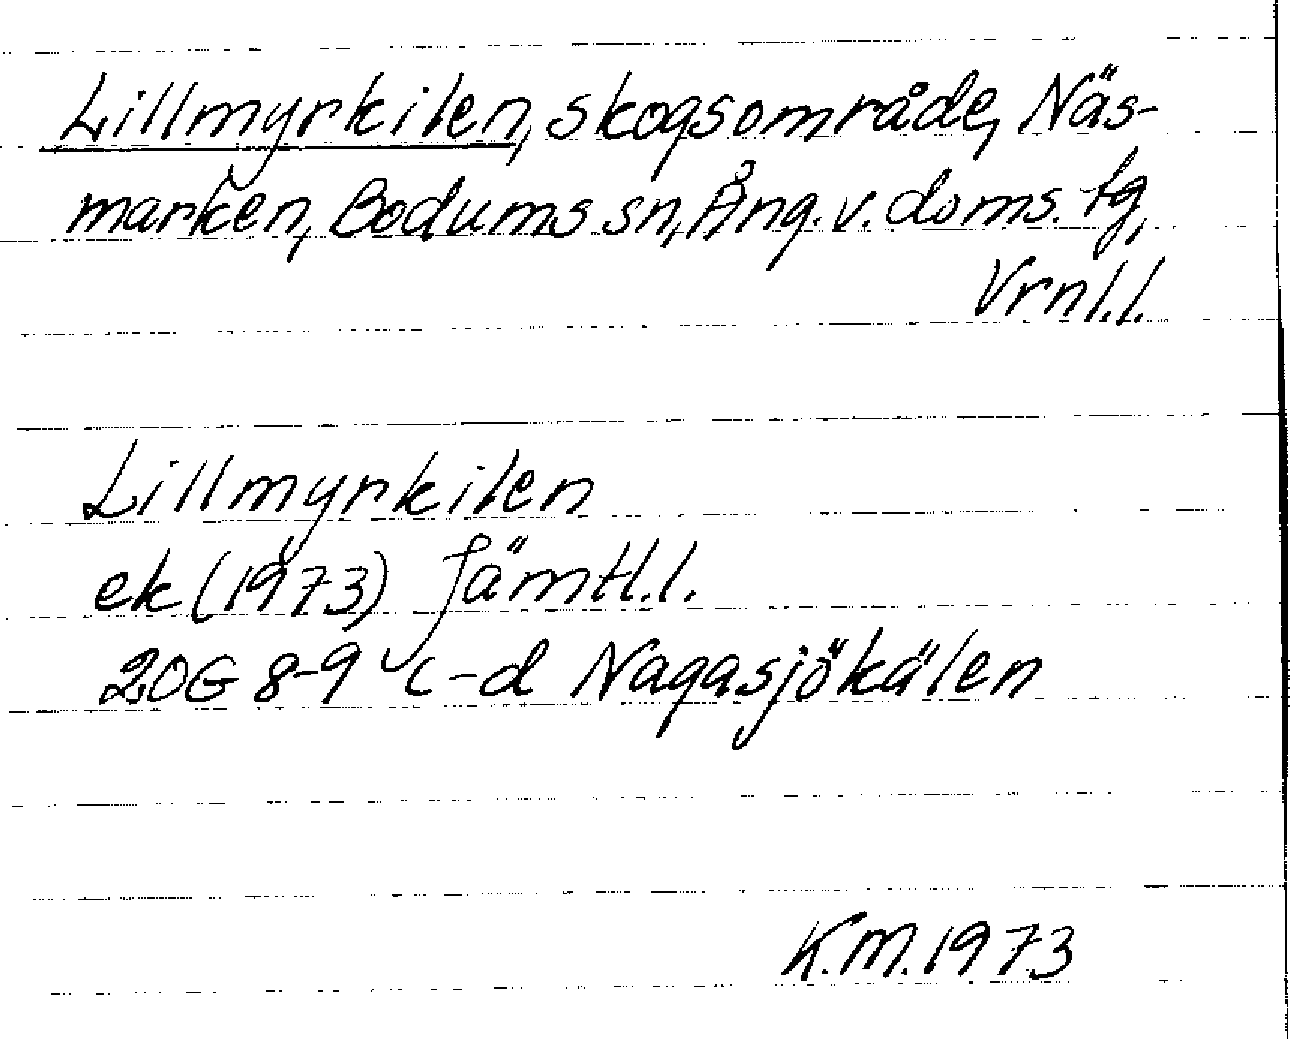 Lillmyrkilen, skogsområde, Näs-
marken, Bodums sn, Ång. v. doms. tg,
Vrnl.l.
Lillmyrkilen
ek (1973) Jämtl.l.
20G 8-9 c-d Nagasjökälen
K.M. 1973